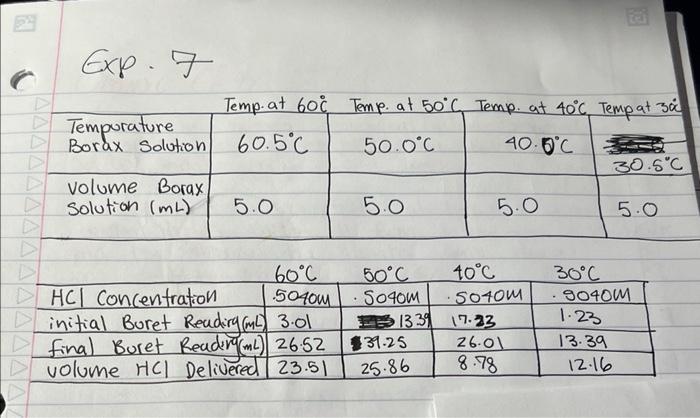 Exp. 7
Temp. at 60°C Temp. at 50°C Temp. at 40°C Temp at 30°C
Temporature
Borax Solution 60.5°C 50.0°C 40.0°C 30.5°C
Volume Borax
Solution (mL) 5.0 5.0 5.0 5.0
60°C 50°C 40°C 30°C
HCl Concentration .5040M .5040M .5040M .5040M
initial Buret Reading (mL) 3.01 13.39 17.23 1.23
final Buret Reading (mL) 26.52 39.25 26.01 13.39
Volume HCl Delivered 23.51 25.86 8.78 12.16